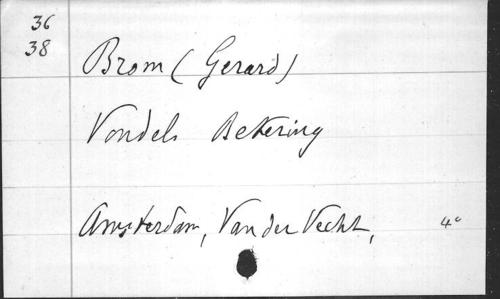 36
38
Brom (Gerard)
Vondels Bekering
Amsterdam, Van der Vecht, 4°